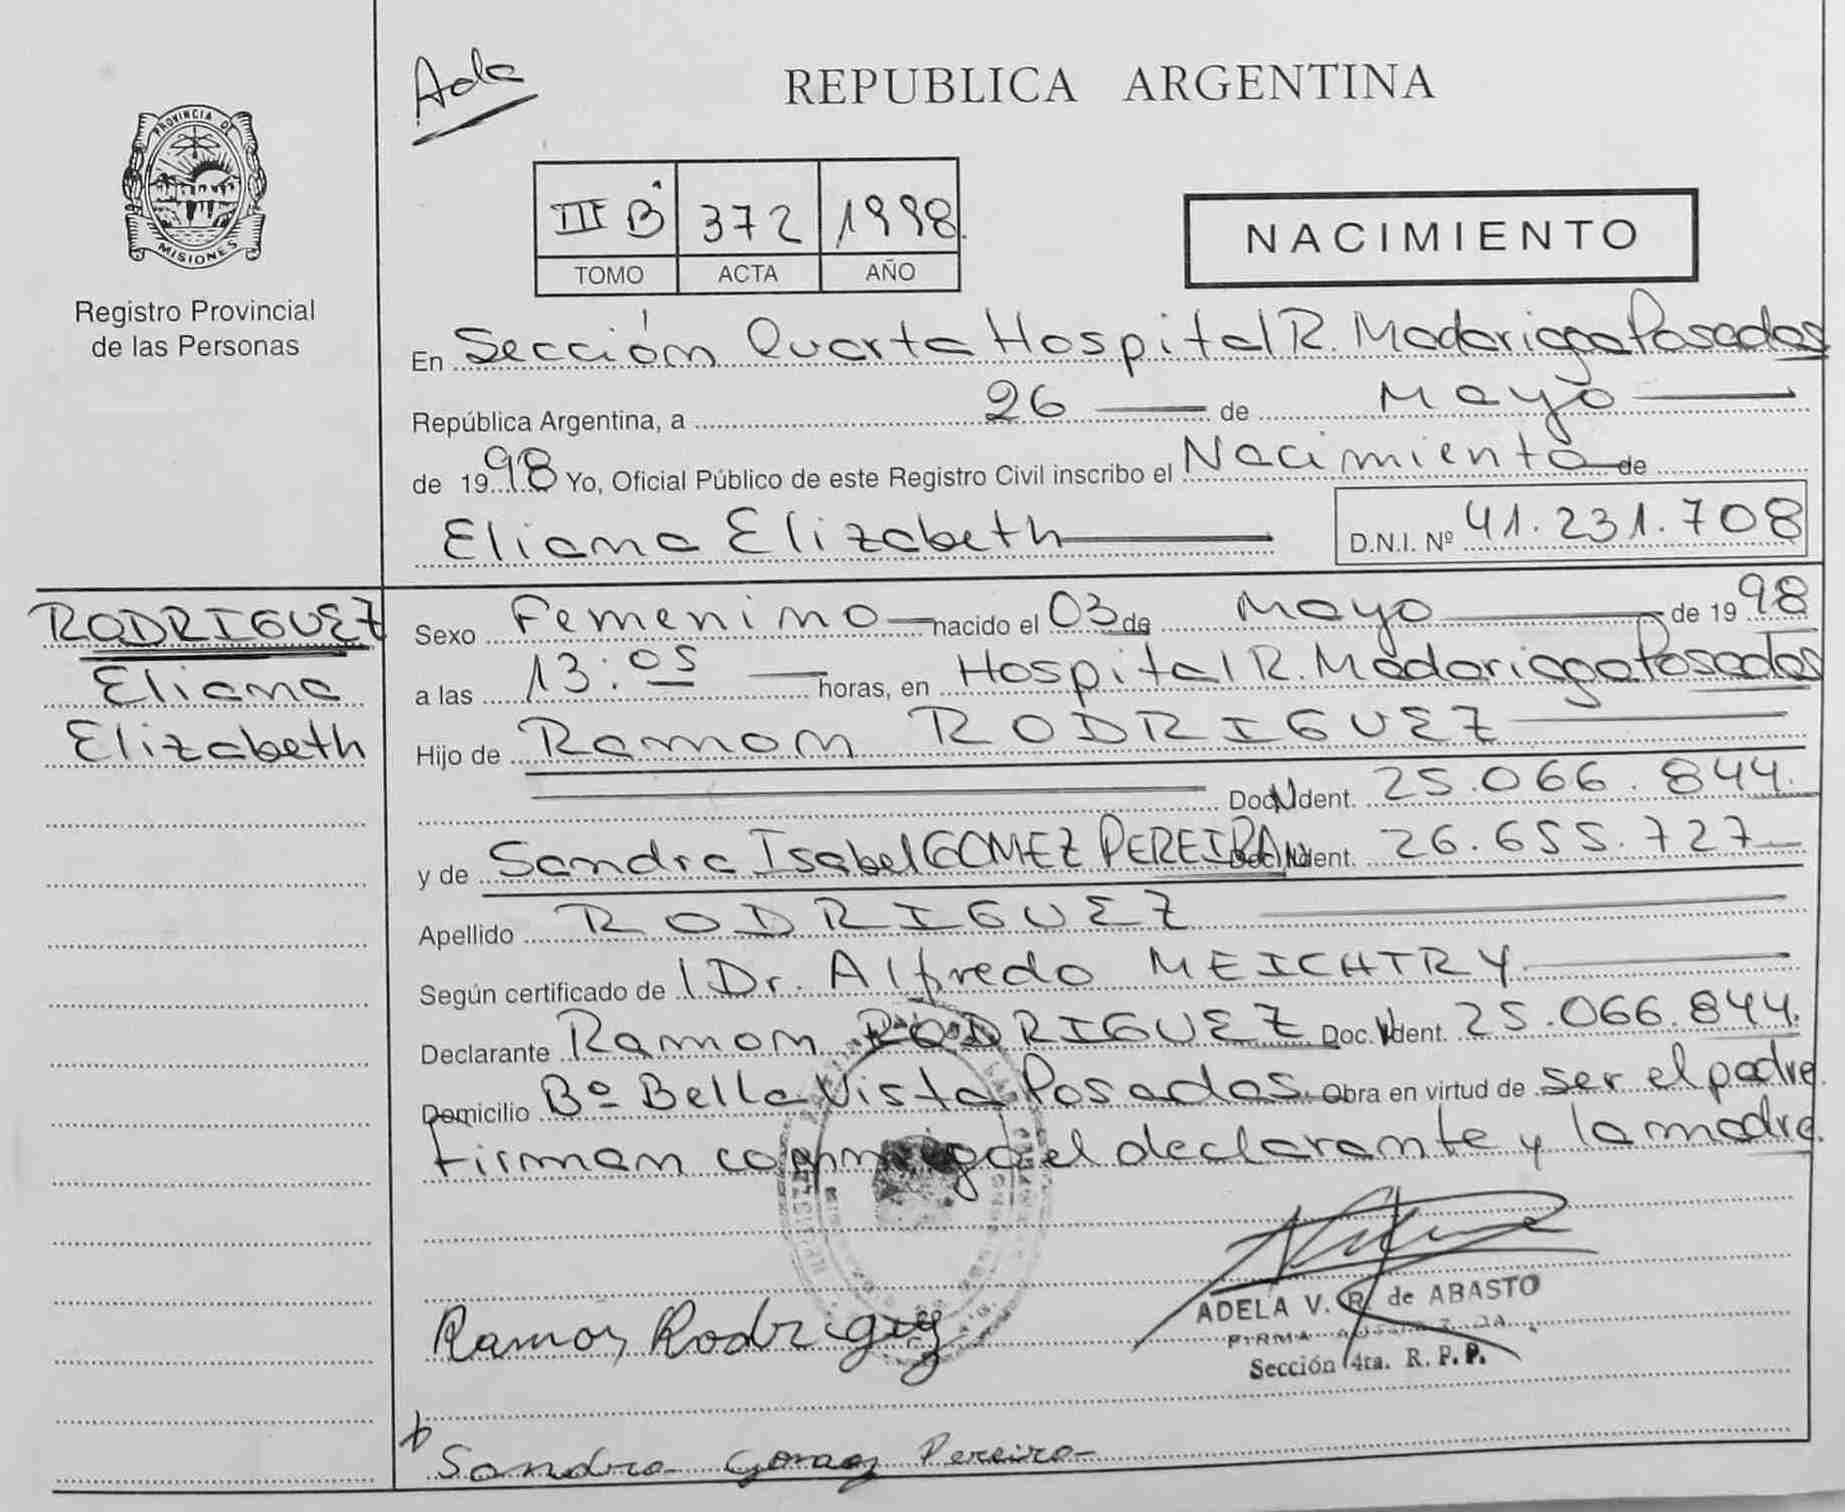 Ada
REPUBLICA ARGENTINA
PROVINCIA DE
MISIONES
Registro Provincial
de las Personas
III B 372 1998.
TOMO ACTA AÑO
NACIMIENTO
En Sección Cuarta Hospital R. Madariaga Posadas
República Argentina, a 26 de Mayo
de 1998 Yo, Oficial Público de este Registro Civil inscribo el Nacimiento de
Eliana Elizabeth D.N.I. Nº 41.231.708
RODRIGUEZ
Eliana
Elizabeth
Sexo Femenino nacido el 03 de Mayo de 1998
a las 13:05 horas, en Hospital R. Madariaga Posadas
Hijo de Ramon RODRIGUEZ
Doc. Ident. 25.066.844.
y de Sandra Isabel GOMEZ PEREIRA Doc. Ident. 26.655.727
Apellido RODRIGUEZ
Según certificado de Dr. Alfredo MEICHTRY
Declarante Ramon RODRIGUEZ Doc. Ident. 25.066.844.
Domicilio Bº Bella Vista Posadas. Obra en virtud de ser el padre.
Firman conmigo el declarante y la madre.
ADELA V. R. de ABASTO
FIRMA
Sección 4ta. R. P. P.
Ramon Rodriguez
Sandra Gomez Pereira